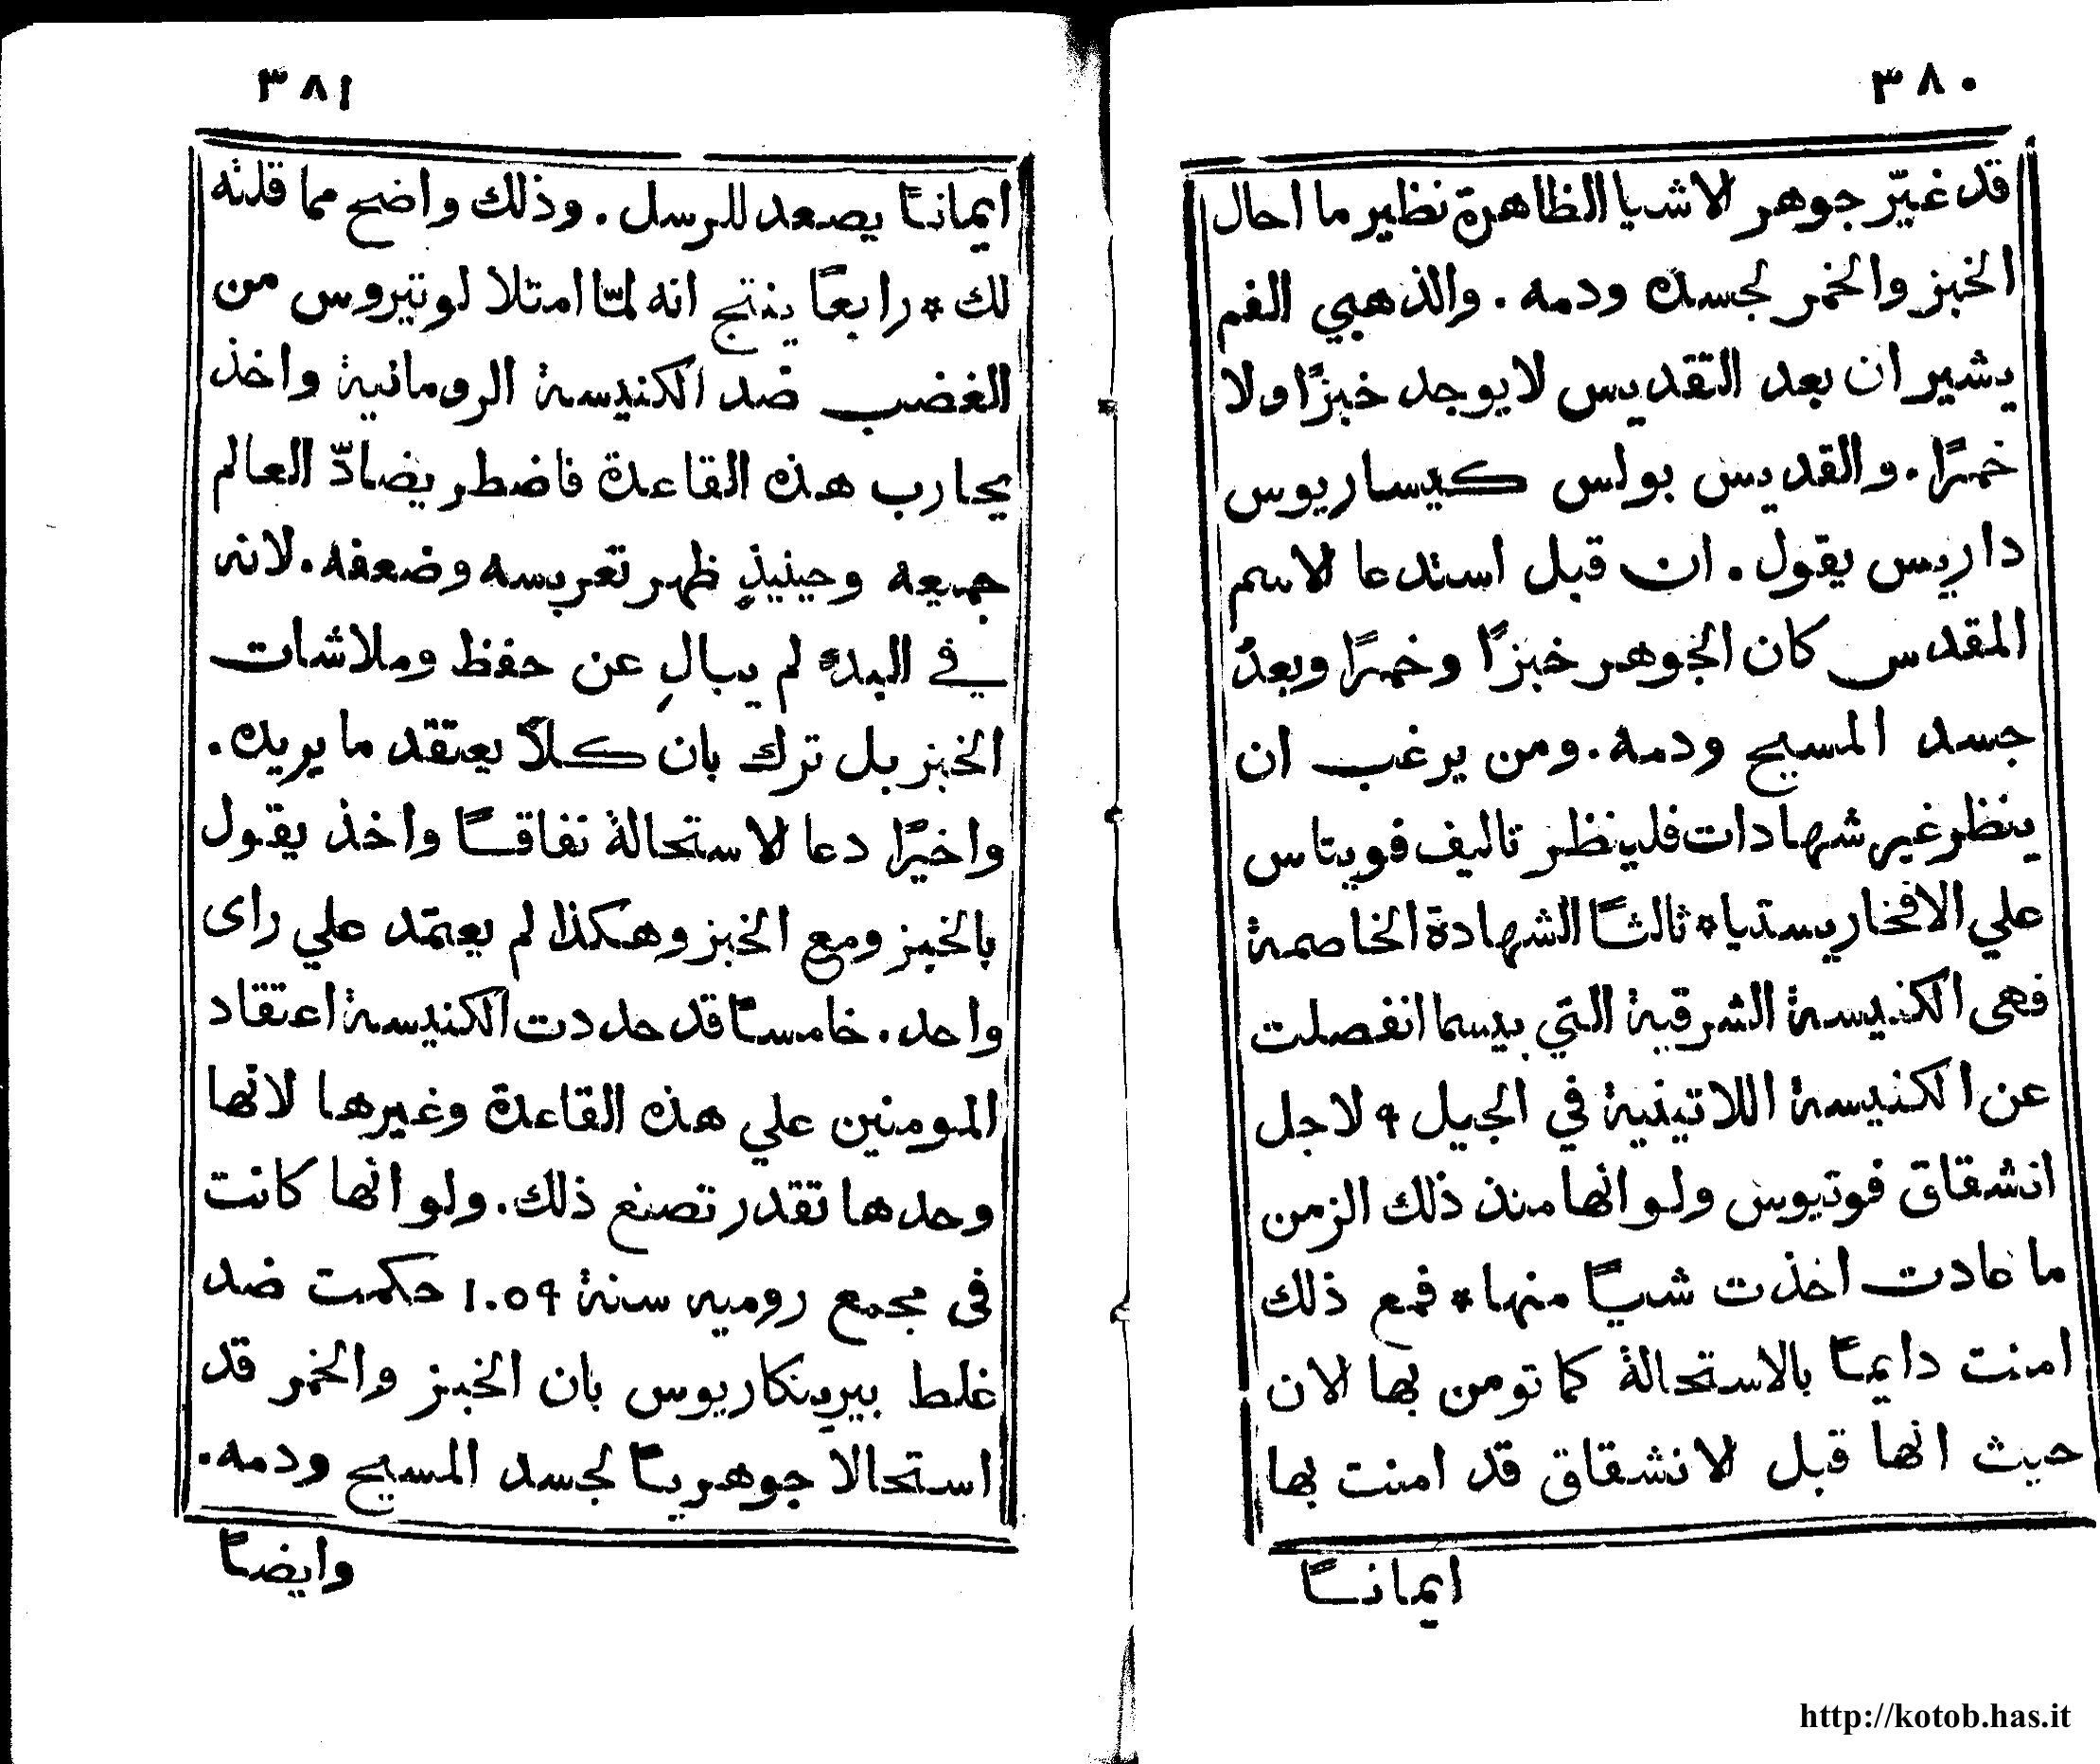 ٣٨٠
قد غيّر جوهر الاشيا الظاهرة نظير ما احال
الخبز والخمر لجسده ودمه . والذهبي الفم
يشير ان بعد التقديس لا يوجد خبزًا ولا
خمرًا . والقديس بولس كيساريوس
داريس يقول . ان قبل استدعا الاسم
المقدس كان الجوهر خبزًا وخمرًا وبعدُ
جسد المسيح ودمه . ومن يرغب ان
ينظر غير شهادات فلينظر تاليف فويتاس
علي الافخاريستيا * ثالثًا الشهادة الخاصمة
فهى الكنيسة الشرقية التي بيسما انفصلت
عن الكنيسة اللاتينية في الجيل ٩ لاجل
انشقاق فوتيوس ولو انها منذ ذلك الزمن
ما عادت اخذت شيًا منها * فمع ذلك
امنت دايمًا بالاستحالة كما تومن بها الان
حيث انها قبل الانشقاق قد امنت بها
ايمانًا
٣٨١
ايمانًا يصعد للرسل . وذلك واضح مما قلته
لك * رابعًا ينتج انه لمّا امتلا لوتيروس من
الغضب ضد الكنيسة الرومانية واخذ
يحارب هذه القاعدة فاضطر يضادّ العالم
جميعه وحينيذٍ ظهر تعربسه وضعفه . لانه
في البدء لم يبالِ عن حفظ وملاشات
الخبز بل ترك بان كلاً يعتقد ما يريده .
واخيرًا دعا الاستحالة نفاقًا واخذ يقول
بالخبز ومع الخبز وهكذا لم يعتمد علي راى
واحد . خامسًا قد حددت الكنيسة اعتقاد
المومنين علي هذه القاعدة وغيرها لانها
وحدها تقدر تصنع ذلك . ولو انها كانت
فى مجمع روميه سنة ١٠٥٩ حكمت ضد
غلط بيرينكاريوس بان الخبز والخمر قد
استحالا جوهريًا لجسد المسيح ودمه .
وايضًا
http://kotob.has.it